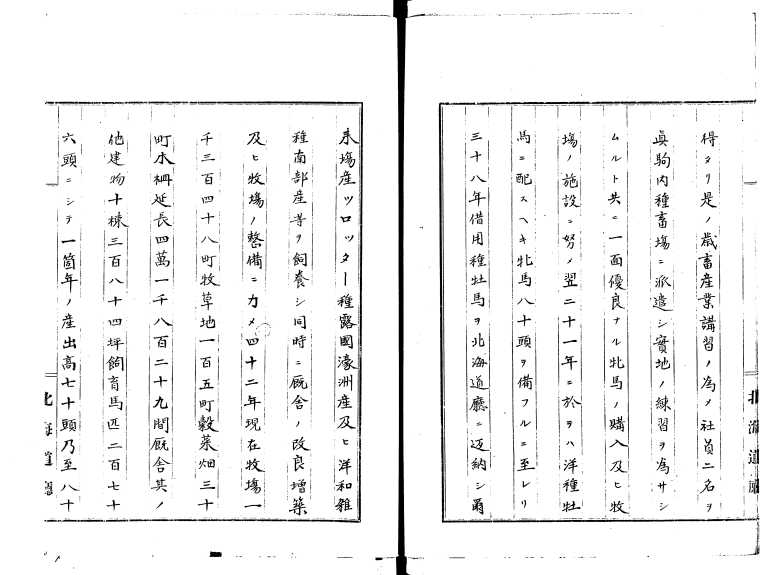 得タリ是ノ歳畜産業講習ノ為メ社員二名ヲ
眞駒内種畜場ニ派遣シ實地ノ練習ヲ為サシ
ムルト共ニ一面優良ナル牝馬ノ購入及ヒ牧
塲ノ施設ニ努メ翌二十一年ニ於テハ洋種牡
馬ニ配スヘキ牝馬八十頭ヲ備フルニ至レリ
三十八年借用種牡馬ヲ北海道廳ニ返納シ爾
来塲産ツロッター種露國濠洲産及ヒ洋和雑
種南部産等ヲ飼養シ同時ニ厩舎ノ改良増築
及ヒ牧塲ノ整備ニ力メ四十二年現在牧塲一
千三百四十八町牧草地一百五町穀菜畑三十
町木柵延長四萬一千八百二十九間厩舎其ノ
他建物十棟三百八十四坪飼育馬匹二百七十
六頭ニシテ一箇年ノ産出高七十頭乃至八十
北海道廳